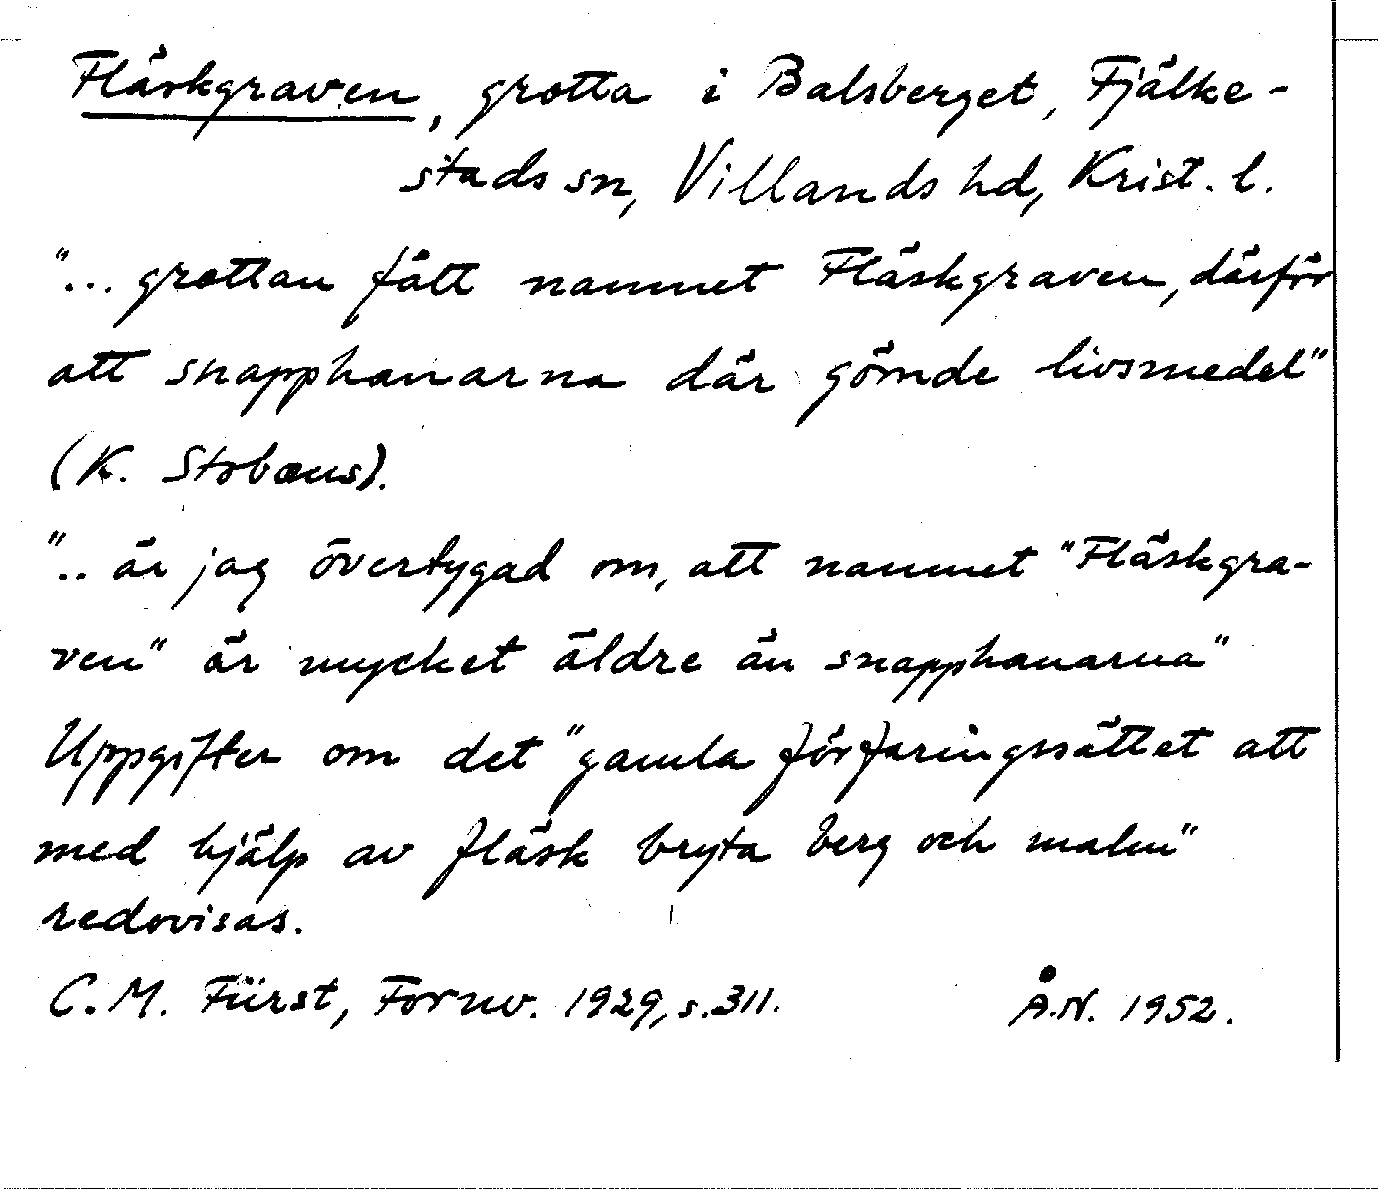 Fläskgraven, grotta i Balsberget, Fjälke-
stads sn, Villands hd, Krist. l.
"... grottan fått namnet Fläskgraven, därför
att snapphanarna där gömde livsmedel"
(K. Stobæus).
".. är jag övertygad om, att namnet "Fläskgra-
ven" är mycket äldre än snapphanarna"
Uppgifter om det "gamla förfaringssättet att
med hjälp av fläsk bryta berg och malm"
redovisas.
C.M. Fürst, Fornv. 1929, s. 311. Å.N. 1952.